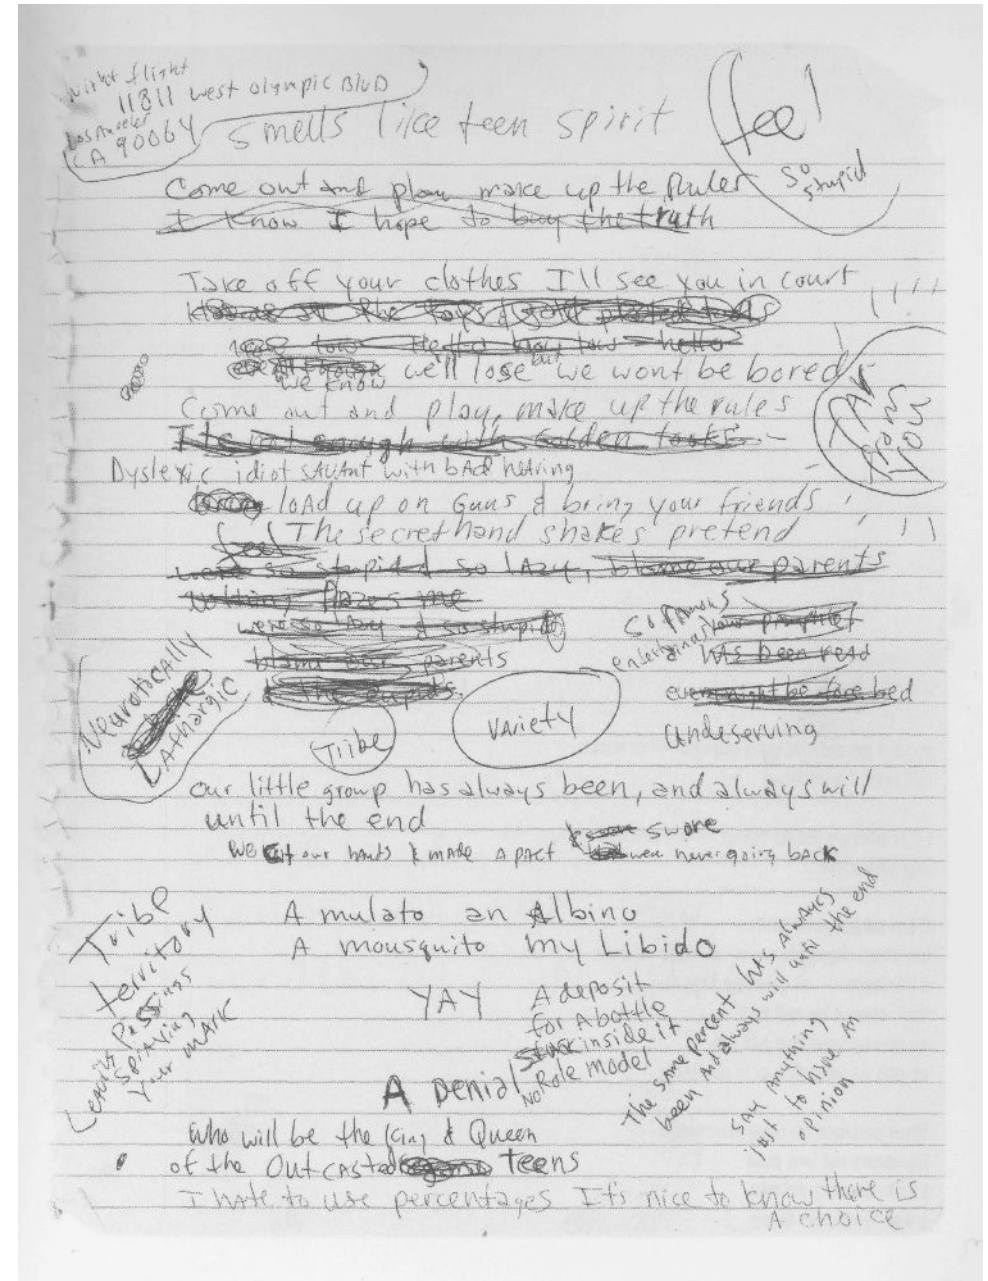 Night flight
11811 West Olympic Blvd
Los Angeles
CA 90064
smells like teen spirit
feel
so
stupid
Come out and play make up the Rules
I know I hope to buy the truth
Take off your clothes I'll see you in court
the toys & gold plated
low hello how low hello
we know we'll lose but we wont be bored
Come out and play, make up the rules
It's not enough with Golden
Dyslexic idiot sAvAnt with bAd heAring
loAd up on Guns & bring your friends
feel The secret hand shakes pretend
we're so stupid so lAzy, blame our parents
nothing me
we're so lAzy & so stupid
blame our parents
so fAmous
entertaining your
hAs been reAd
bed
undeserving
NeuroticAlly
LAthArgic
Tribe
VArieTy
our little group has always been, and always will
until the end
we cut our hAnds & mAde A pAct swore
we're never going bAck
Tribe
territory
Leaving Pissings
SprAying
Your mARK
A mulato an Albino
A mousquito my Libido
YAY
A deposit
for A bottle
Stuck inside it
No Role model
A Denial
The sAme percent hAs AlwAyes
been And always will until the end
SAy Anything
just to hAve An
opinion
Who will be the King & Queen
of the OutcAsted Teens
I hAte to use percentages It's nice to know there is
A choice